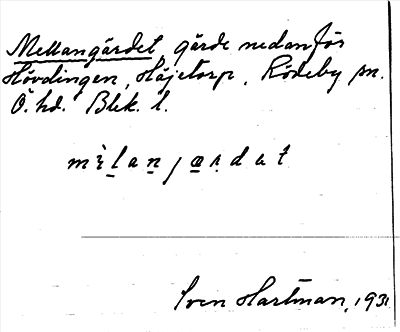 Mellangärdet gärde nedanför
Hövdingen, Häjetorp, Rödeby sn.
Ö. hd. Blek. l.
mèlanjærdet
Sven Hartman, 1931